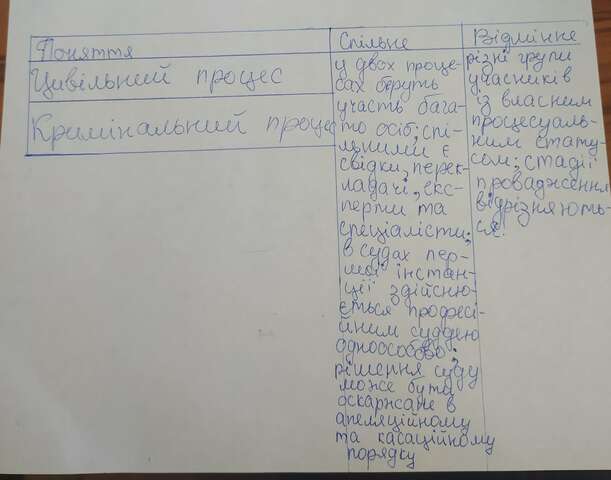 Поняття
Цивільний процес
Кримінальний процес
Спільне
у двох проце-
сах беруть
участь бага-
то осіб; спі-
льними є
свідки, перек-
ладачі, екс-
перти та
спеціалісти;
в судах пер-
шої інстан-
ції здійсню-
ється професі-
йним суддею
одноособово;
рішення суду
може бути
оскаржане в
апеляційному
та касаційному
порядку
Відмінне
різні групи
учасників
із власним
процесуаль-
ним стату-
сом; стадії
провадження
відрізняють-
ся.